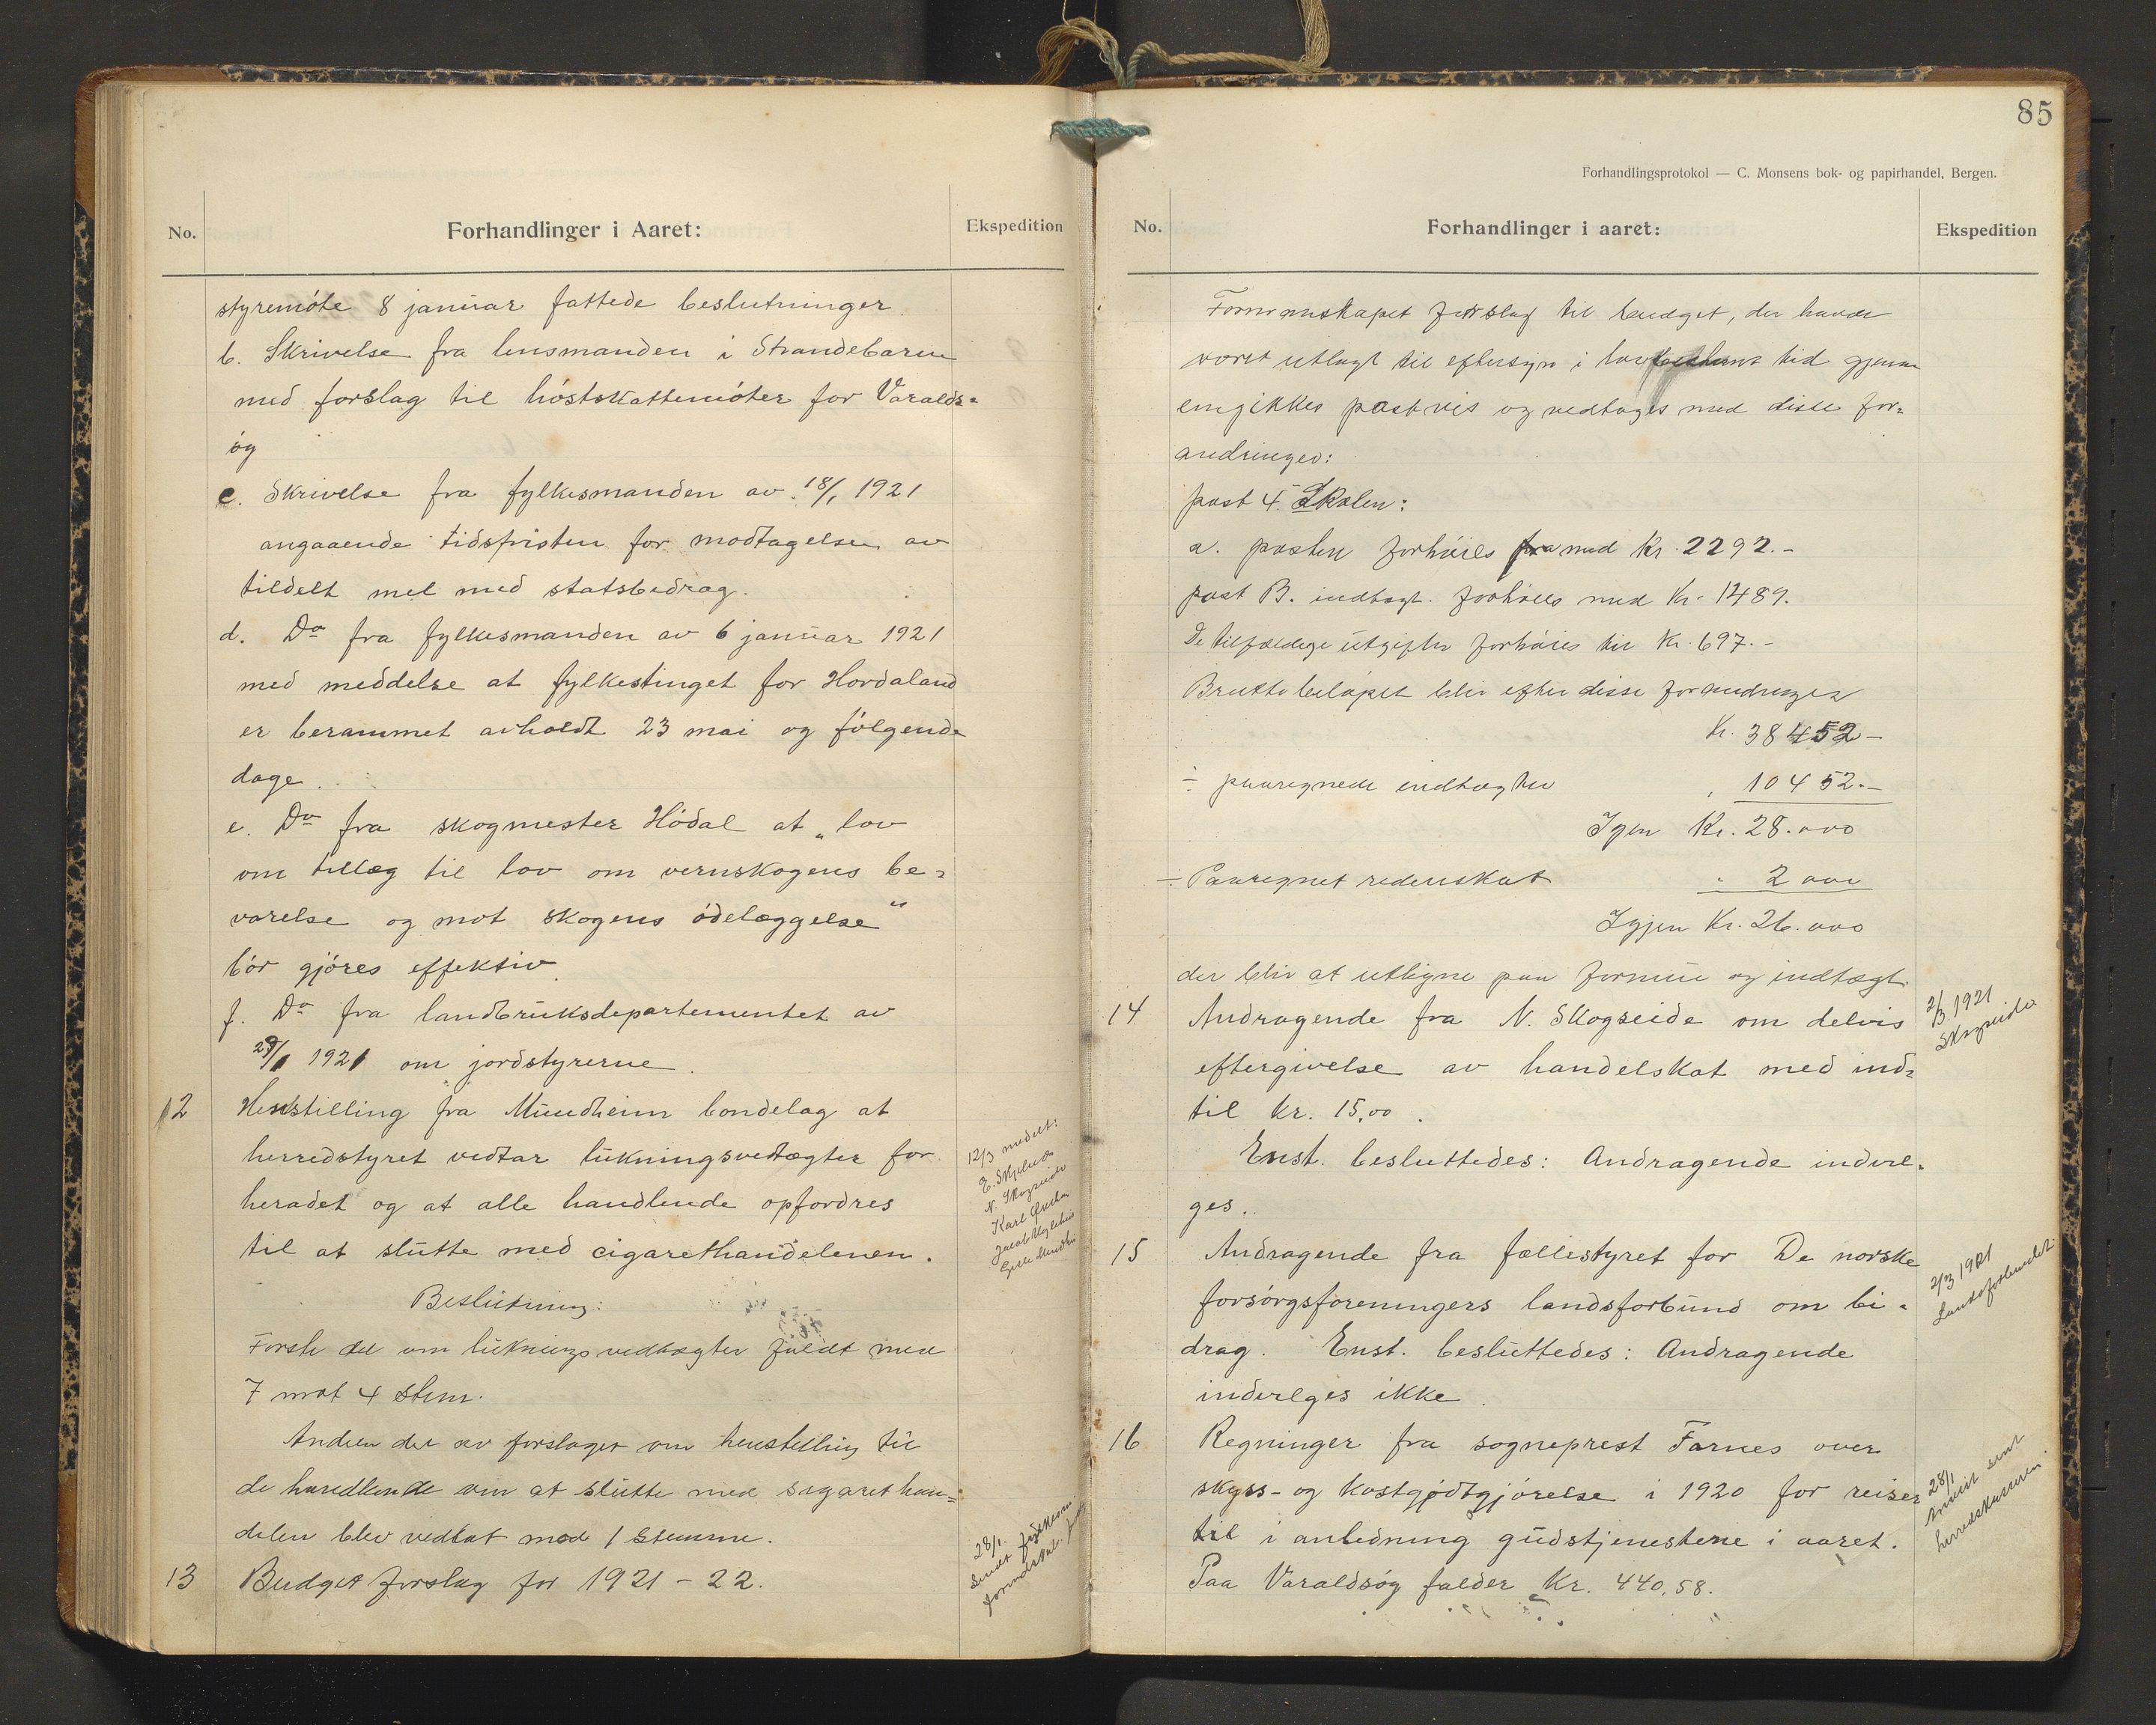 No.
Forhandlinger i Aaret:
Ekspedition
styremöte 8 januar fattede beslutninger.
b. Skrivelse fra lensmanden i Strandebarm
med forslag til höstskattemöter for Varalds-
öy
c. Skrivelse fra fylkesmanden av 18/1 1921
angaaende tidsfristen for modtagelsen av
tildelt mel med statsbedrag.
d. Do fra fylkesmanden av 6 januar 1921
med meddelse at fylkestinget for Hordaland
er berammet avholdt 23 mai og fölgende
dage.
e. Do fra skogmester Hödal at "lov
om tillæg til lov om vernskogens be-
varelse og mot skogens ödelæggelse"
bör gjöres effektiv.
f. Do fra landbruksdepartementet av
29/1 1921 om jordstyrerne.
12 Henstilling fra Mundheim bondelag at
herredstyret vedtar lukningsvedtægter for
heradet og at alle handlende opfordres
til at slutte med cigarethandelenen.
12/3 medelt:
N. Skogseide
Karl
Beslutning:
Förste del om lukningsvedtægter faldt med
7 mot 4 stem.
Anden del av forslaget om henstilling til
de handlende om at slutte med sigarethan-
delen blev vedtat mod 1 stemme.
13 Budget forslag for 1921-22.
28/1.
Sendt
85
Forhandlingsprotokol — C. Monsens bok- og papirhandel, Bergen.
No.
Forhandlinger i aaret:
Ekspedition
Formannskapet forslag til budget, der havde
været utlagt til eftersyn i lovbestemt tid gjenn-
emgikkes postvis og vedtoges med disse for-
andringer:
post 4. Skolen:
a. posten forhöies med kr. 2292.-
post B. indtægt. forhöies med Kr. 1489.
De tilfældige utgifter forhöies til Kr. 697.-
Bruttobelöpet blir efter disse forandringer
Kr. 38452-
÷ paaregnede indtægter " 10452.-
Igen Kr. 28.000
÷ Paaregnet redenskat " 2000
Igjen Kr. 26.000
der blir at utligne paa formue og indtægt.
14 Andragende fra N. Skogseide om delvis
eftergivelse av handelskat med ind-
til kr. 15,00.
2/3 1921
Skogseide
Enst. besluttedes: Andragende indvil-
ges.
15 Andragende fra fællestyret for De norske
forsörgsforeningers landsforbund om bi-
drag. Enst. besluttedes: Andragende
indvilges ikke.
2/3 1921
Landsforbundet.
16 Regninger fra sogneprest Farnes over
skyss- og kostgodtgjörelse i 1920 for reiser
til i anledning gudstjenestene i aaret.
Paa Varaldsöy falder Kr. 440,58.
28/1
sent
herredskasseren.